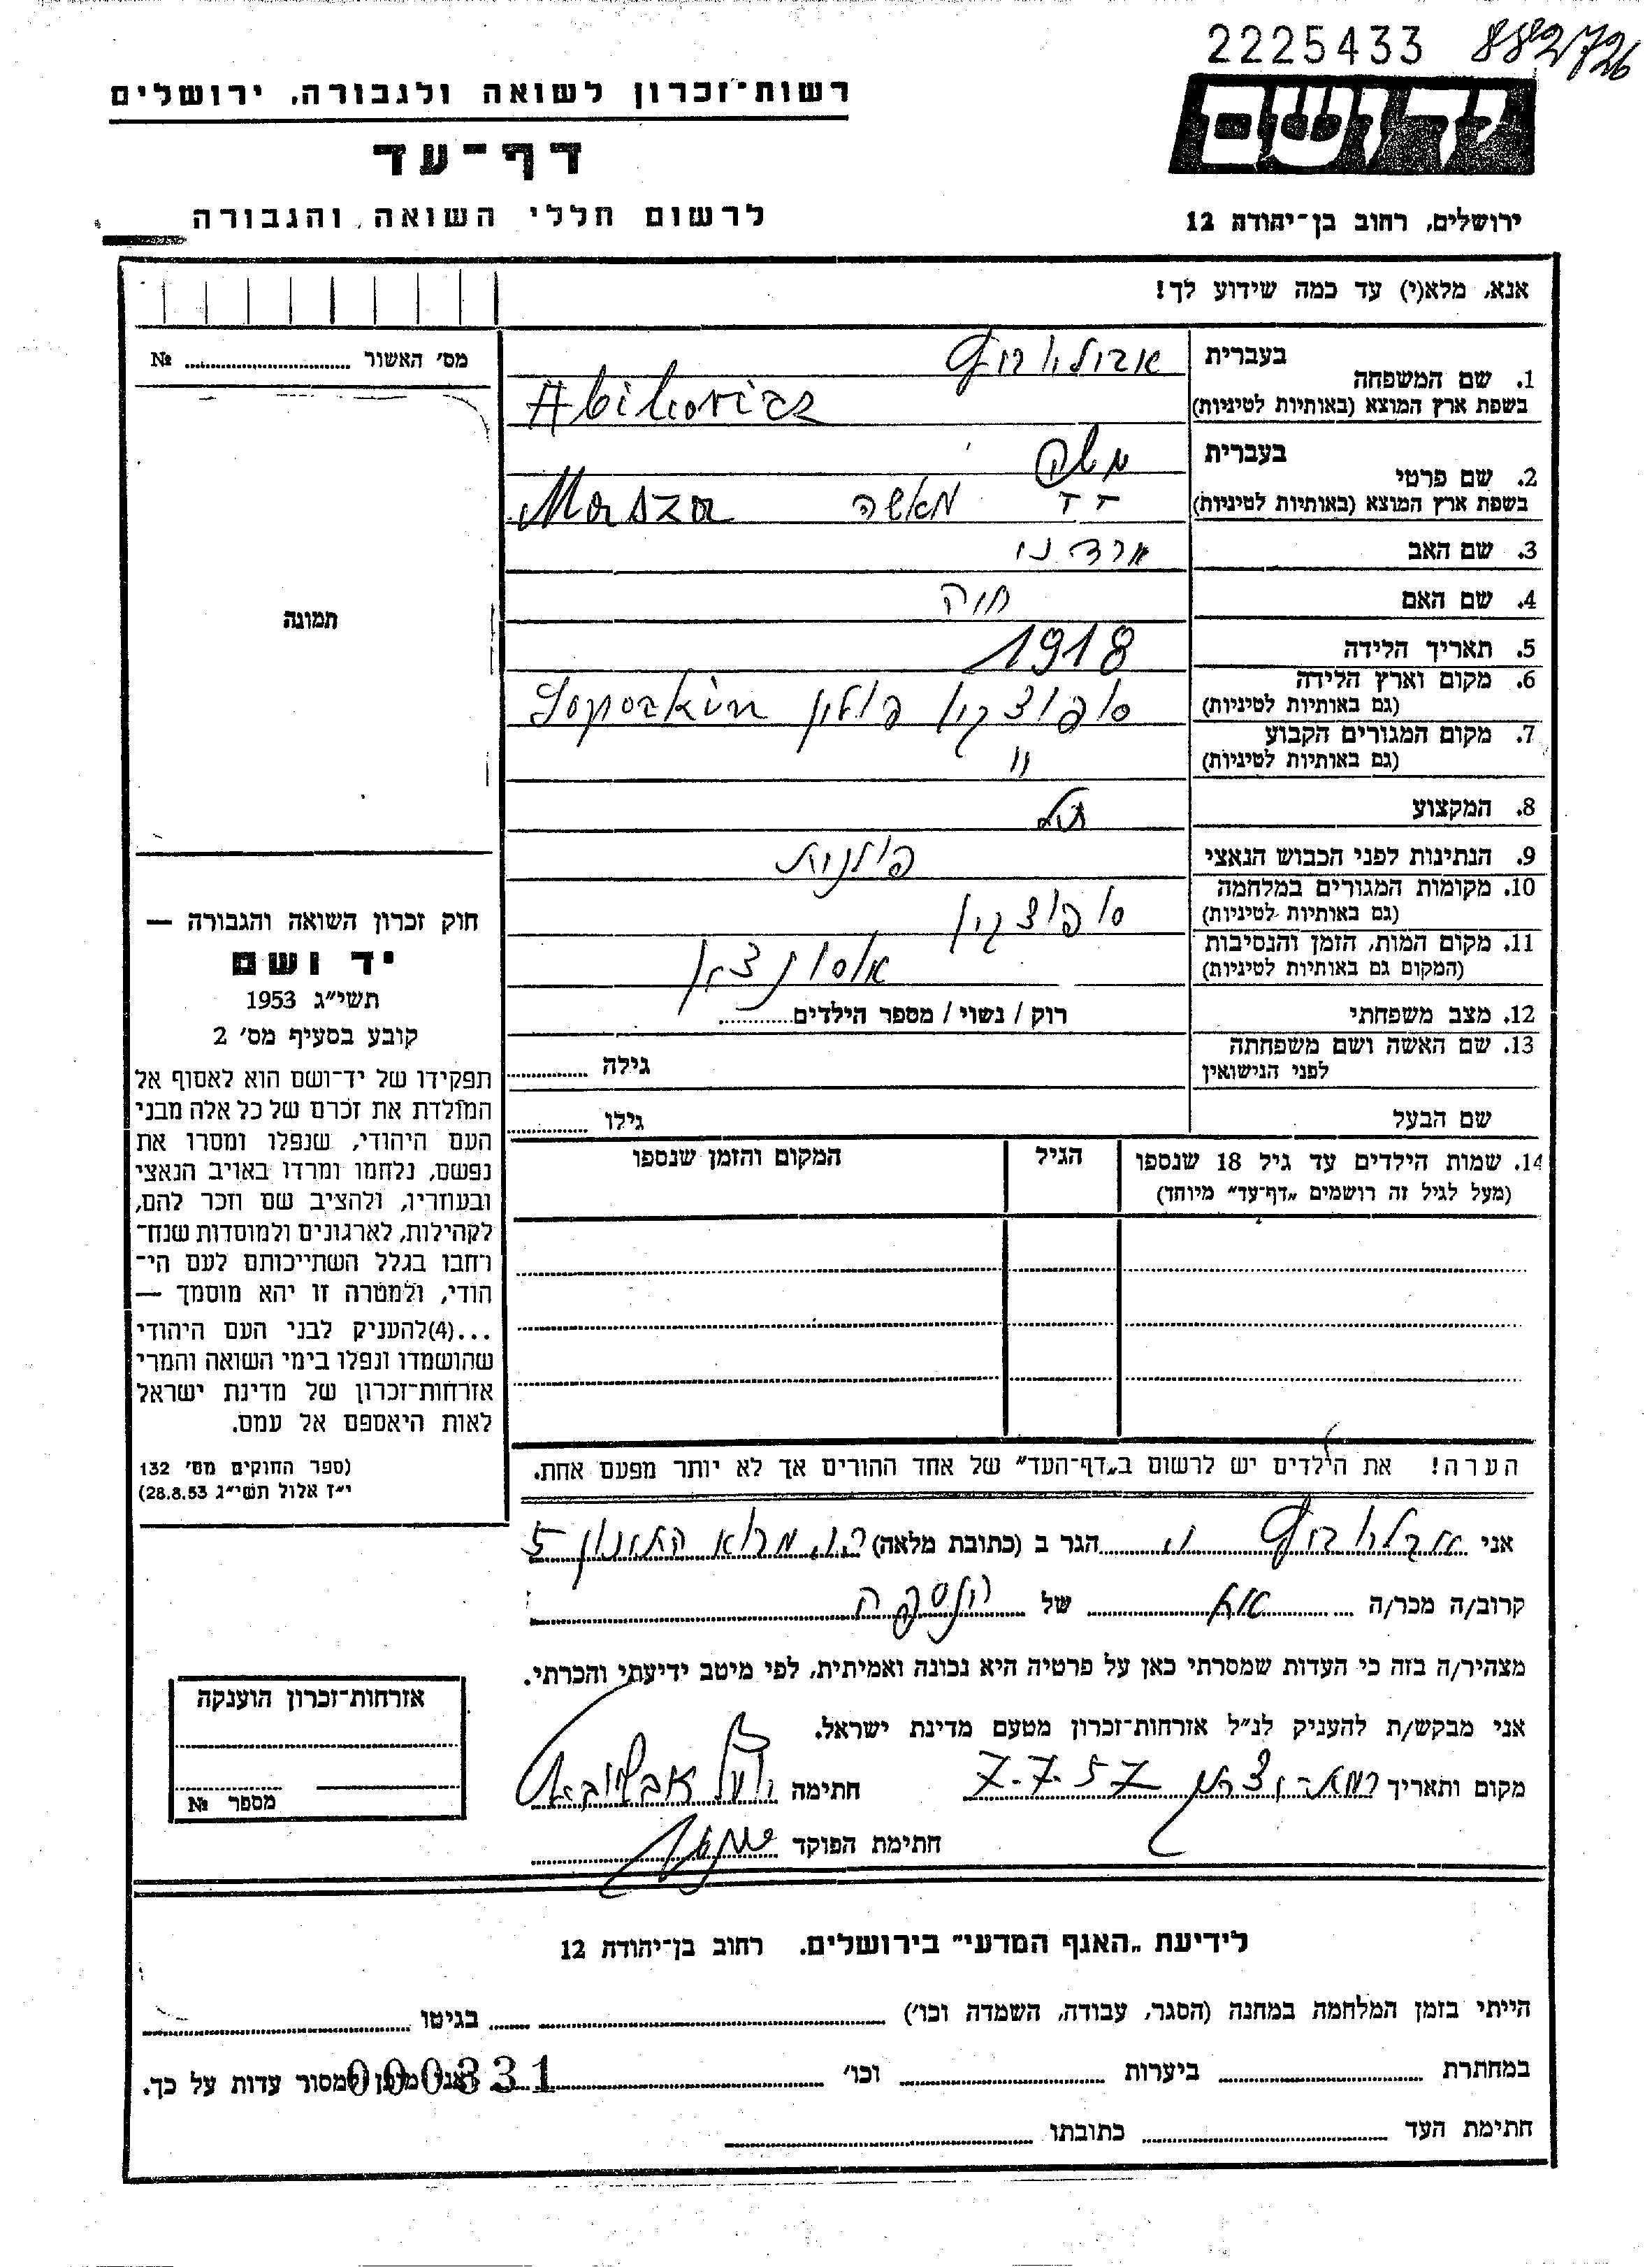 2225433 882726
רשות־זכרון לשואה ולגבורה, ירושלים
דף־עד
לרשום חללי השואה והגבורה
ידושם
ירושלים, רחוב בן־יהודה 12
אנא, מלא(י) עד כמה שידוע לך!
מס׳ האשור № ....................
תמונה
בעברית
1. שם המשפחה
בשפת ארץ המוצא (באותיות לטיניות) Abikovicz
בעברית
2. שם פרטי
בשפת ארץ המוצא (באותיות לטיניות) מאשה Masza
3. שם האב
4. שם האם חוה
5. תאריך הלידה 1918
6. מקום וארץ הלידה
(גם באותיות לטיניות) סופוצקין פולין Sopockin
7. מקום המגורים הקבוע
(גם באותיות לטיניות) "
8. המקצוע
9. הנתינות לפני הכבוש הנאצי פולנית
10. מקומות המגורים במלחמה
(גם באותיות לטיניות) סופוצקין
11. מקום המות, הזמן והנסיבות
(המקום גם באותיות לטיניות)
12. מצב משפחתי רוק / נשוי / מספר הילדים............
13. שם האשה ושם משפחתה
לפני הנישואין גילה ............
שם הבעל גילו ............
14. שמות הילדים עד גיל 18 שנספו
(מעל לגיל זה רושמים „דף־עד״ מיוחד)
הגיל
המקום והזמן שנספו
חוק זכרון השואה והגבורה —
יד ושם
תשי״ג 1953
קובע בסעיף מס׳ 2
תפקידו של יד־ושם הוא לאסוף אל
המולדת את זכרם של כל אלה מבני
העם היהודי, שנפלו ומסרו את
נפשם, נלחמו ומרדו באויב הנאצי
ובעוזריו, ולהציב שם וזכר להם,
לקהילות, לארגונים ולמוסדות שנח־
רחבו בגלל השתייכותם לעם הי־
הודי, ולמטרה זו יהא מוסמך —
...(4)להעניק לבני העם היהודי
שהושמדו ונפלו בימי השואה והמרי
אזרחות־זכרון של מדינת ישראל
לאות היאספם אל עמם.
(ספר החוקים מס׳ 132
י״ז אלול תשי״ג 28.8.53)
הערה! את הילדים יש לרשום ב„דף־העד״ של אחד ההורים אך לא יותר מפעם אחת.
אני הגר ב (כתובת מלאה) 5
קרוב/ה מכר/ה אח של הנספה
מצהיר/ה בזה כי העדות שמסרתי כאן על פרטיה היא נכונה ואמיתית, לפי מיטב ידיעתי והכרתי.
אני מבקש/ת להעניק לנ״ל אזרחות־זכרון מטעם מדינת ישראל.
מקום ותאריך 7.7.57 חתימה
חתימת הפוקד
אזרחות־זכרון הוענקה
מספר №
לידיעת „האגף המדעי״ בירושלים. רחוב בן־יהודה 12
הייתי בזמן המלחמה במחנה (הסגר, עבודה, השמדה וכו׳) בגיטו
במחתרת ביערות וכו׳ ואני מוכן למסור עדות על כך.
000331
חתימת העד כתובתו